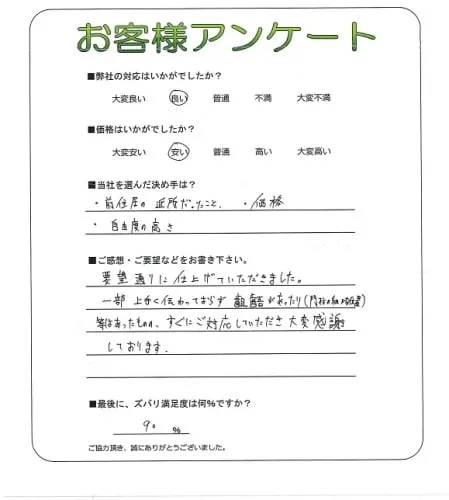 お客様アンケート
■弊社の対応はいかがでしたか?
大変良い 良い 普通 不満 大変不満
■価格はいかがでしたか?
大変安い 安い 普通 高い 大変高い
■当社を選んだ決め手は?
・前住居の近所だったこと、 ・価格
・自由度の高さ
■ご感想・ご要望などをお書き下さい。
要望通りに仕上げていただきました。
一部 上手く伝わっておらず 齟齬があったり(
等はあったものの、すぐにご対応していただき大変感謝
しております.
■最後に、ズバリ満足度は何%ですか?
90 %
ご協力頂き、誠にありがとうございました。